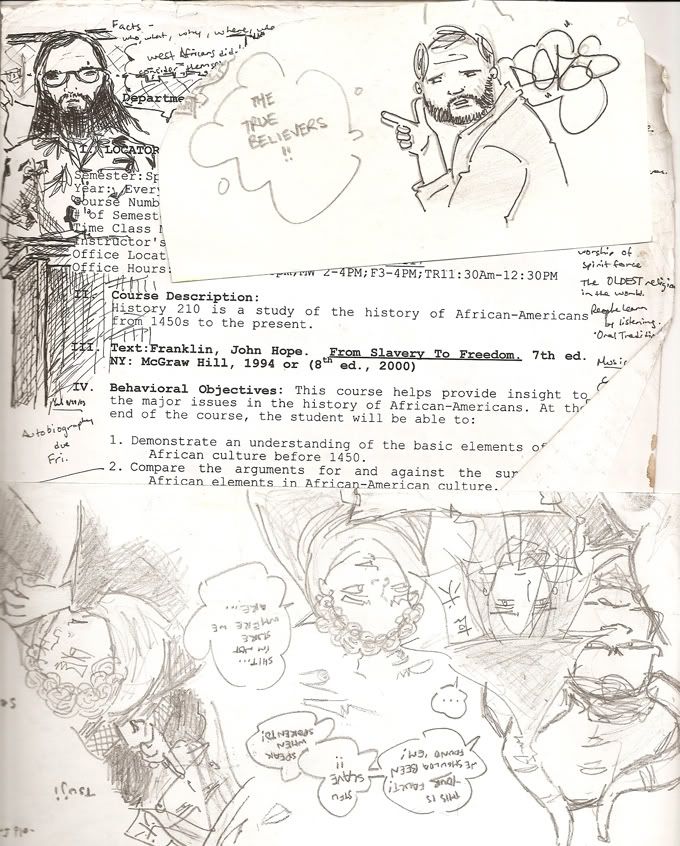 Facts -
who, what, why, where, who
West Africans did!!
Departme
THE
TRUE
BELIEVERS
!!
I. LOCATOR
Semester:Sp
Year: Every
Course Numb
# of Semest
Time Class M
Instructor's
Office Locat
Office Hours:
PM;MW 2-4PM;F3-4PM;TR11:30Am-12:30PM
worship of
spirit force
The OLDEST religion
in the world.
People learn
by listening.
"Oral Traditio
Music
II. Course Description:
History 210 is a study of the history of African-Americans
from 1450s to the present.
III. Text:Franklin, John Hope. From Slavery To Freedom. 7th ed.
NY: McGraw Hill, 1994 or (8th ed., 2000)
IV. Behavioral Objectives: This course helps provide insight to
the major issues in the history of African-Americans. At the
end of the course, the student will be able to:
Autobiography
due
Fri.
1. Demonstrate an understanding of the basic elements of
African culture before 1450.
2. Compare the arguments for and against the sur
African elements in African-American culture.
SHIT...
I'M NOT
SURE
WHERE WE
ARE...
...
THIS IS
YOUR FAULT!
WE SHOULDA BEEN
FOUND 'EM!
STFU
SLAVE
!!
SPEAK
WHEN
SPOKEN TO!
Tsuji